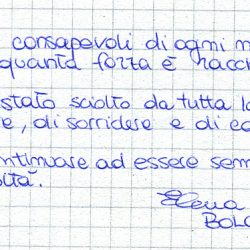 consapevoli di ogni
quanta forza è racch
stato sciolto da tutta la
e, di sorridere e di
ntinuare ad essere sem
ltà.
Elena
BOLO